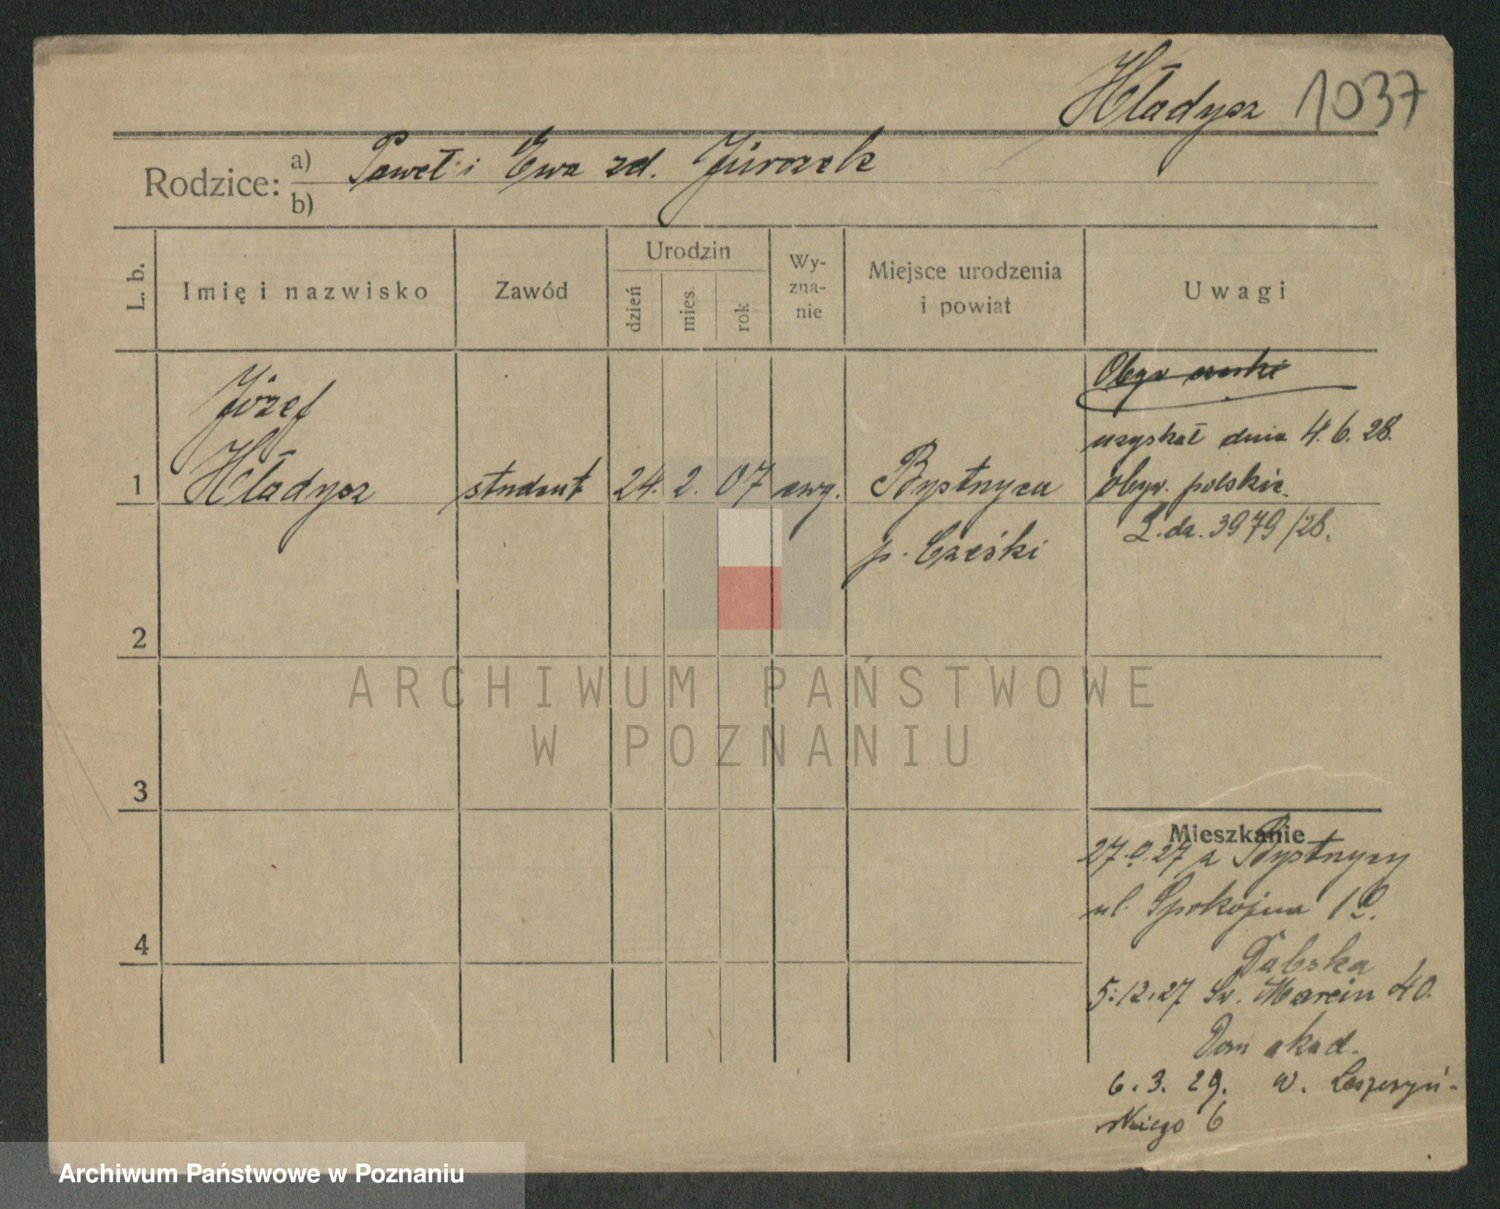 Hładysz 1037
Rodzice: a) Paweł i Ewa zd. Jurczek
b)
L. b.
Imię i nazwisko
Zawód
Urodzin
dzień
mies.
rok
Wy-
zna-
nie
Miejsce urodzenia
i powiat
Uwagi
Obyw czeski
uzyskał dnia 4.6.28.
obyw. polskie.
L.dz. 3979/28.
Józef
1 Hładysz student 24. 2. 07 ewg. Bystrzyca
p. Czeski
2
3
4
Mieszkanie
27. 27 z Bystrzycy
ul. Spokojna
5.12.27 Św. Marcin 40.
Dom akad.
6.3.29. W. Leszczyń-
skiego 6
ARCHIWUM PAŃSTWOWE
W POZNANIU
Archiwum Państwowe w Poznaniu